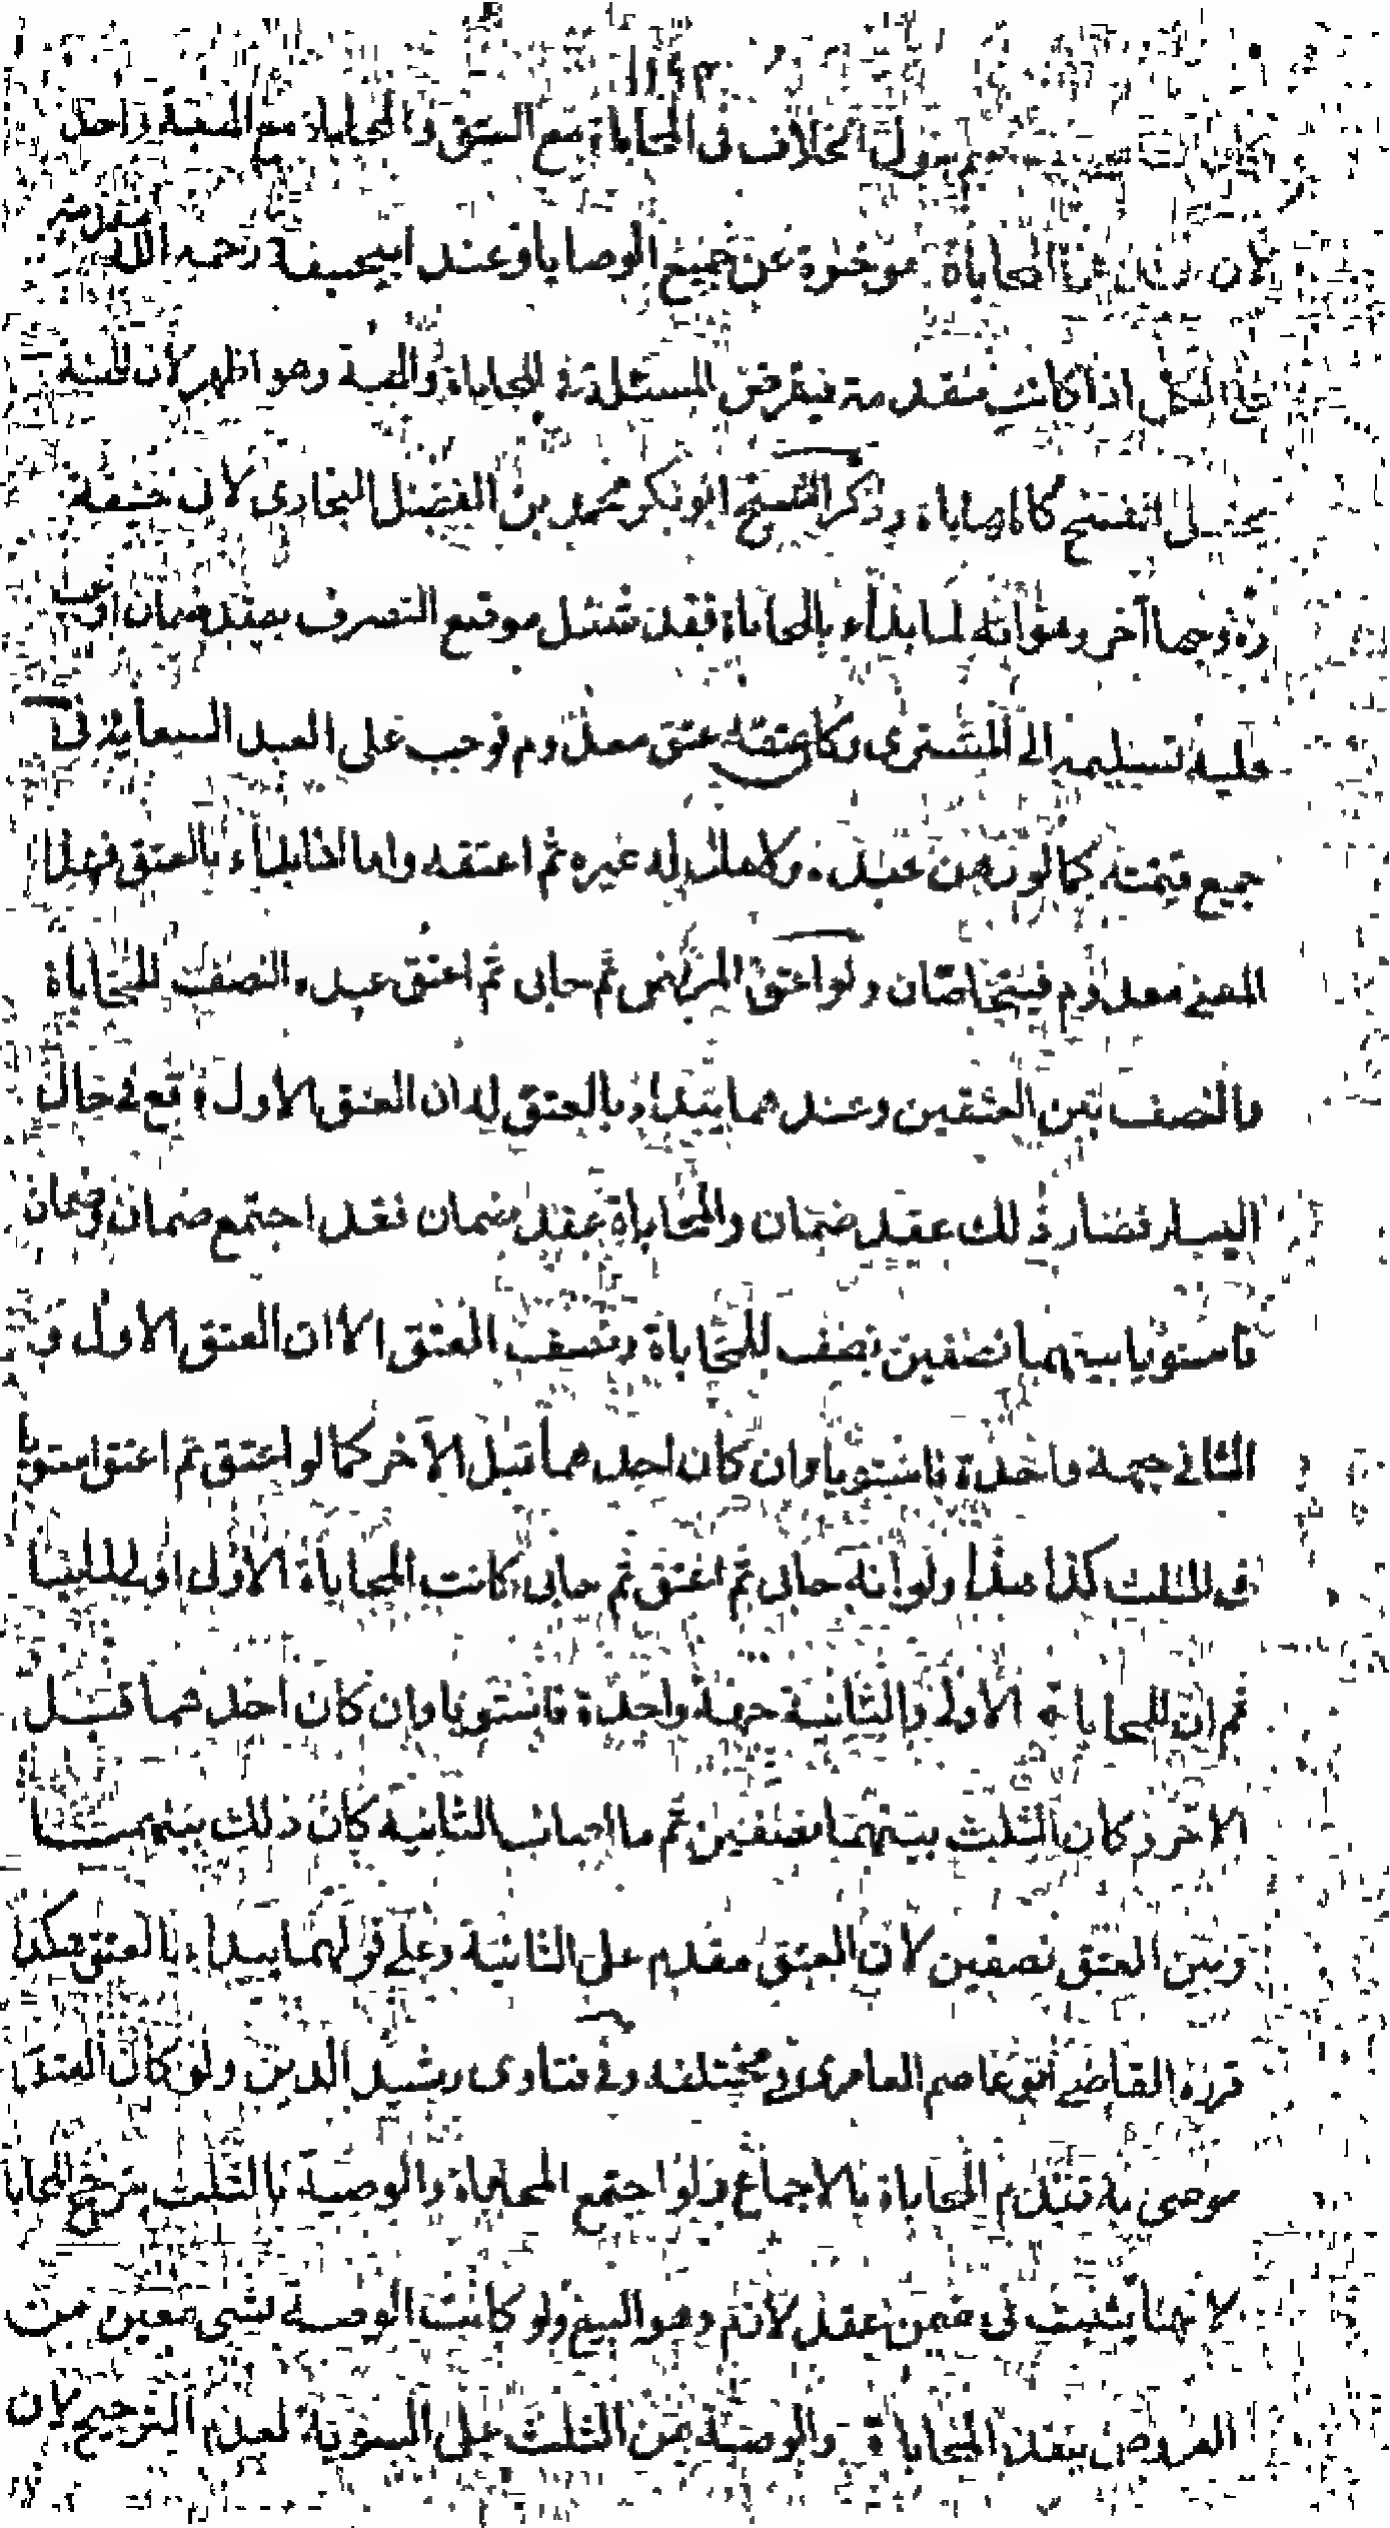 الخلاف فى المحاباة مع العتق والمحاباة مع الهبة واحد
لان المحاباة مؤخرة عن جميع الوصايا وعند ابيحنيفة رحمه الله مقدمة
على الكل اذا كانت متقدمة فيفرض المسئلة فى المحاباة والهبة وهو اظهر لان الهبة
يحتمل الفسخ كالمحاباة وذكر الشيخ ابو بكر محمد بن الفضل البخارى لابى حنيفة
ره وجها آخر وهو انه لما بداء بالمحاباة فقد شغل موقع التصرف بعقد ضمان اوجب
عليه تسليمه الى المشترى وكاعتقه عتق معدوم فوجب على العبد السعاية فى
جميع قيمته كما لو رهن عبده ولا مال له غيره ثم اعتقه واما اذا بداء بالعتق فهذا
المعنى معدوم فيتحاصّان ولو اعتق المريض ثم حابى ثم اعتق عبده النصف للمحاباة
والنصف بين العتقين وعندهما يبداء بالعتق له ان العتق الاول وقع فى حال
اليسار فصار ذلك عقد ضمان والمحاباة عقد ضمان فقد اجتمع ضمان وضمان
فاستويا بينهما نصفين نصف للمحاباة ونصف العتق الا ان العتق الاول و
الثانى جهة واحدة فاستويا وان كان احدهما قبل الآخر كما لو اعتق ثم اعتق استويا
فى الثلث كذا هذا ولو انه حابى ثم اعتق ثم حابى كانت المحاباة الاول اولى لما بينا
ثم ان للمحاباة الاولى والثانية جهة واحدة فاستويا وان كان احدهما قبل
الآخر وكان الثلث بينهما نصفين ثم ما اصاب الثانية كان ذلك بينهما
وبين العتق نصفين لان العتق مقدم على الثانية وعلى قولهما يبداء بالعتق هكذا
قرره القاضى ابو عاصم العامرى فى مختلفه وفى فتاوى رشيد الدين ولو كان العتق
موصى به تقدم المحاباة بالاجماع ولو اجتمع المحاباة والوصية بالثلث يترجح المحاباة
لانها يثبت فى ضمن عقد لازم وهو البيع ولو كانت الوصية بشى معين من
العروض ينفذ المحاباة والوصية من الثلث على السوية لعدم الترجيح لان